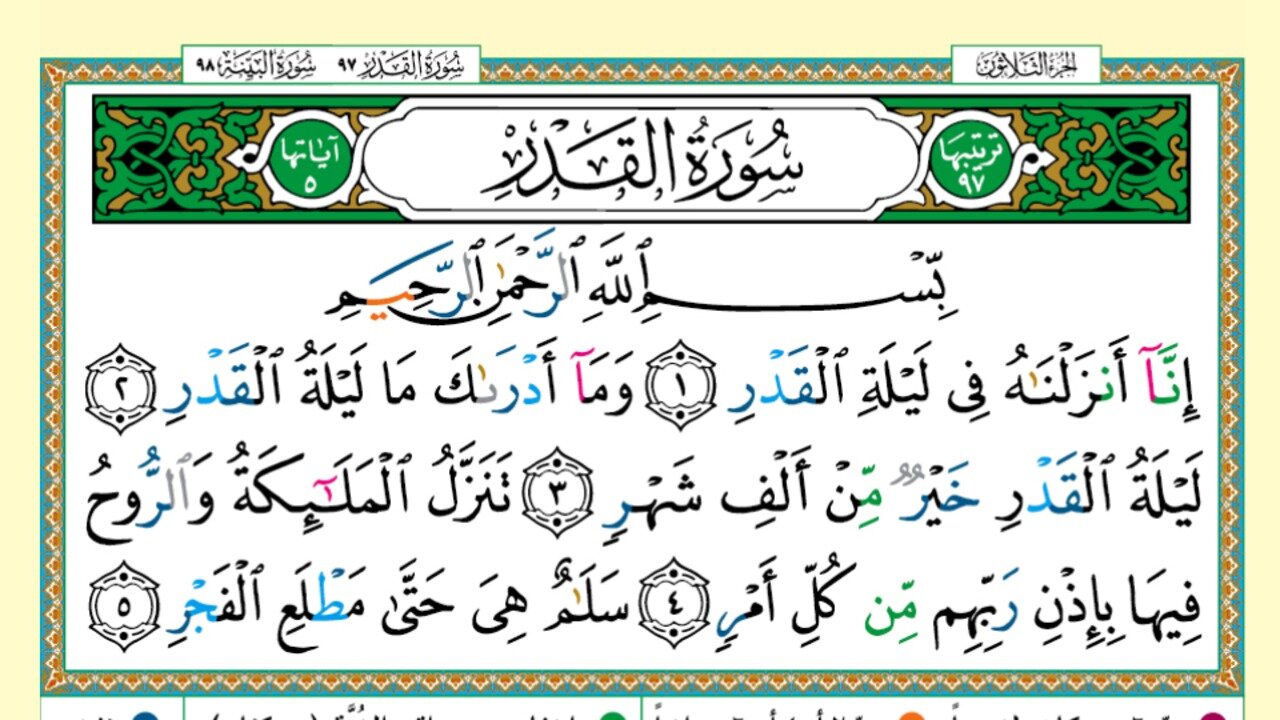 الجزء الثلاثون
سورة القدر ٩٧ سورة البينة ٩٨
ترتيبها ٩٧
سُورَةُ القَدْرِ
آياتها ٥
بِّسْمِ ٱللَّهِ ٱلرَّحْمَٰنِ ٱلرَّحِيمِ
إِنَّآ أَنزَلْنَٰهُ فِى لَيْلَةِ ٱلْقَدْرِ ١ وَمَآ أَدْرَىٰكَ مَا لَيْلَةُ ٱلْقَدْرِ ٢
لَيْلَةُ ٱلْقَدْرِ خَيْرٌ مِّنْ أَلْفِ شَهْرٍ ٣ تَنَزَّلُ ٱلْمَلَٰٓئِكَةُ وَٱلرُّوحُ
فِيهَا بِإِذْنِ رَبِّهِم مِّن كُلِّ أَمْرٍ ٤ سَلَٰمٌ هِىَ حَتَّىٰ مَطْلَعِ ٱلْفَجْرِ ٥